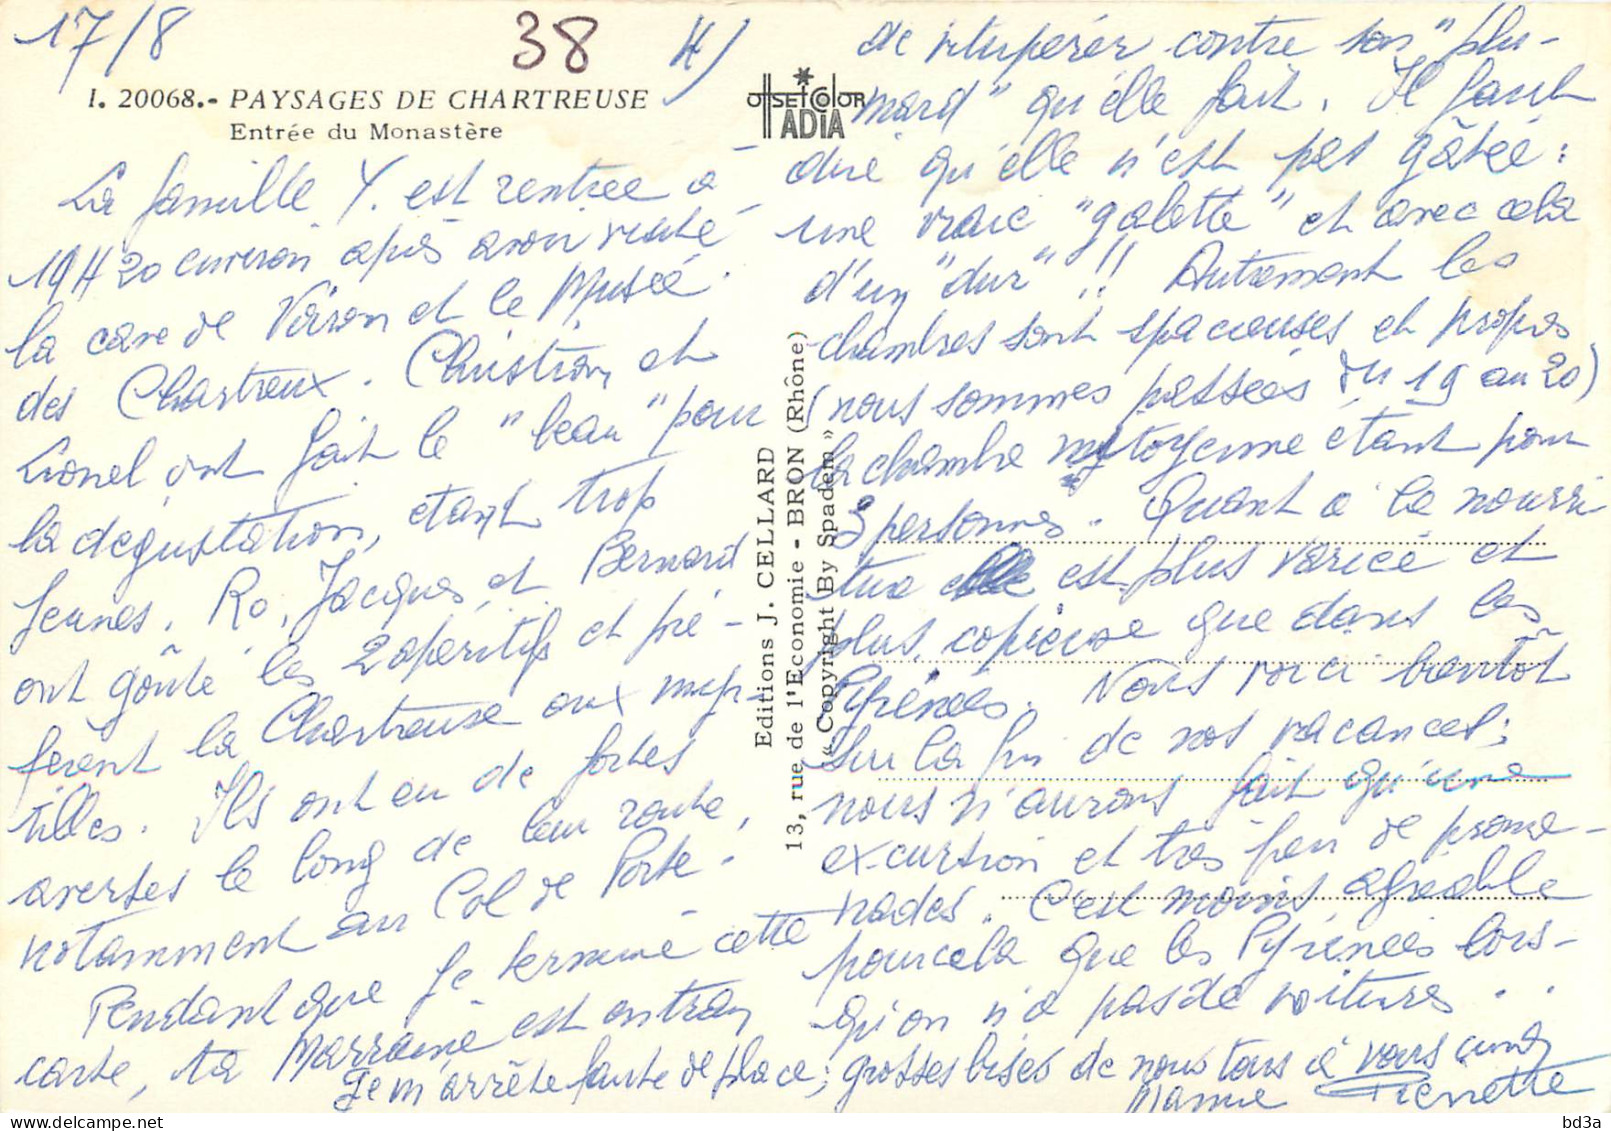 17/8
38
4)
I. 20068.- PAYSAGES DE CHARTREUSE
Entrée du Monastère
OFFSET COLOR
ADIA
La famille Y. est rentrée à
19H20 environ après avoir visité
la cave de Voiron et le Musée
des Chartreux. Christian et
Lionel ont fait le "beau" pour
la dégustation, étant trop
jeunes. Ro, Jacques et Bernard
ont goûté les 2 apéritifs et pré-
fèrent la Chartreuse aux myr-
tilles. Ils ont eu de fortes
averses le long de leur route,
notamment au Col de Porte.
Pendant que je termine cette
carte, ta Marraine est en train
de vitupérer contre son "plu-
mard" qu'elle fait. Il faut
dire qu'elle n'est pas gâtée :
une vraie "galette" et avec cela
d'un "dur" !! Autrement les
chambres sont spacieuses et propres
(nous sommes passées du 19 au 20)
la chambre mitoyenne étant pour
3 personnes. Quant à la nourri
ture elle est plus variée et
plus copieuse que dans les
Pyrénées. Nous voici bientôt
sur la fin de nos vacances;
nous n'aurons fait qu'une
excursion et très peu de prome-
nades. C'est moins agréable
pour cela que les Pyrénées lors-
qu'on n'a pas de voitures . .
Je m'arrête faute de place; grosses bises de nous tous à vous cinq
Mamie Pierrette
Editions J. CELLARD
13, rue de l'Economie - BRON (Rhône)
« Copyright By Spadem »
bd3a